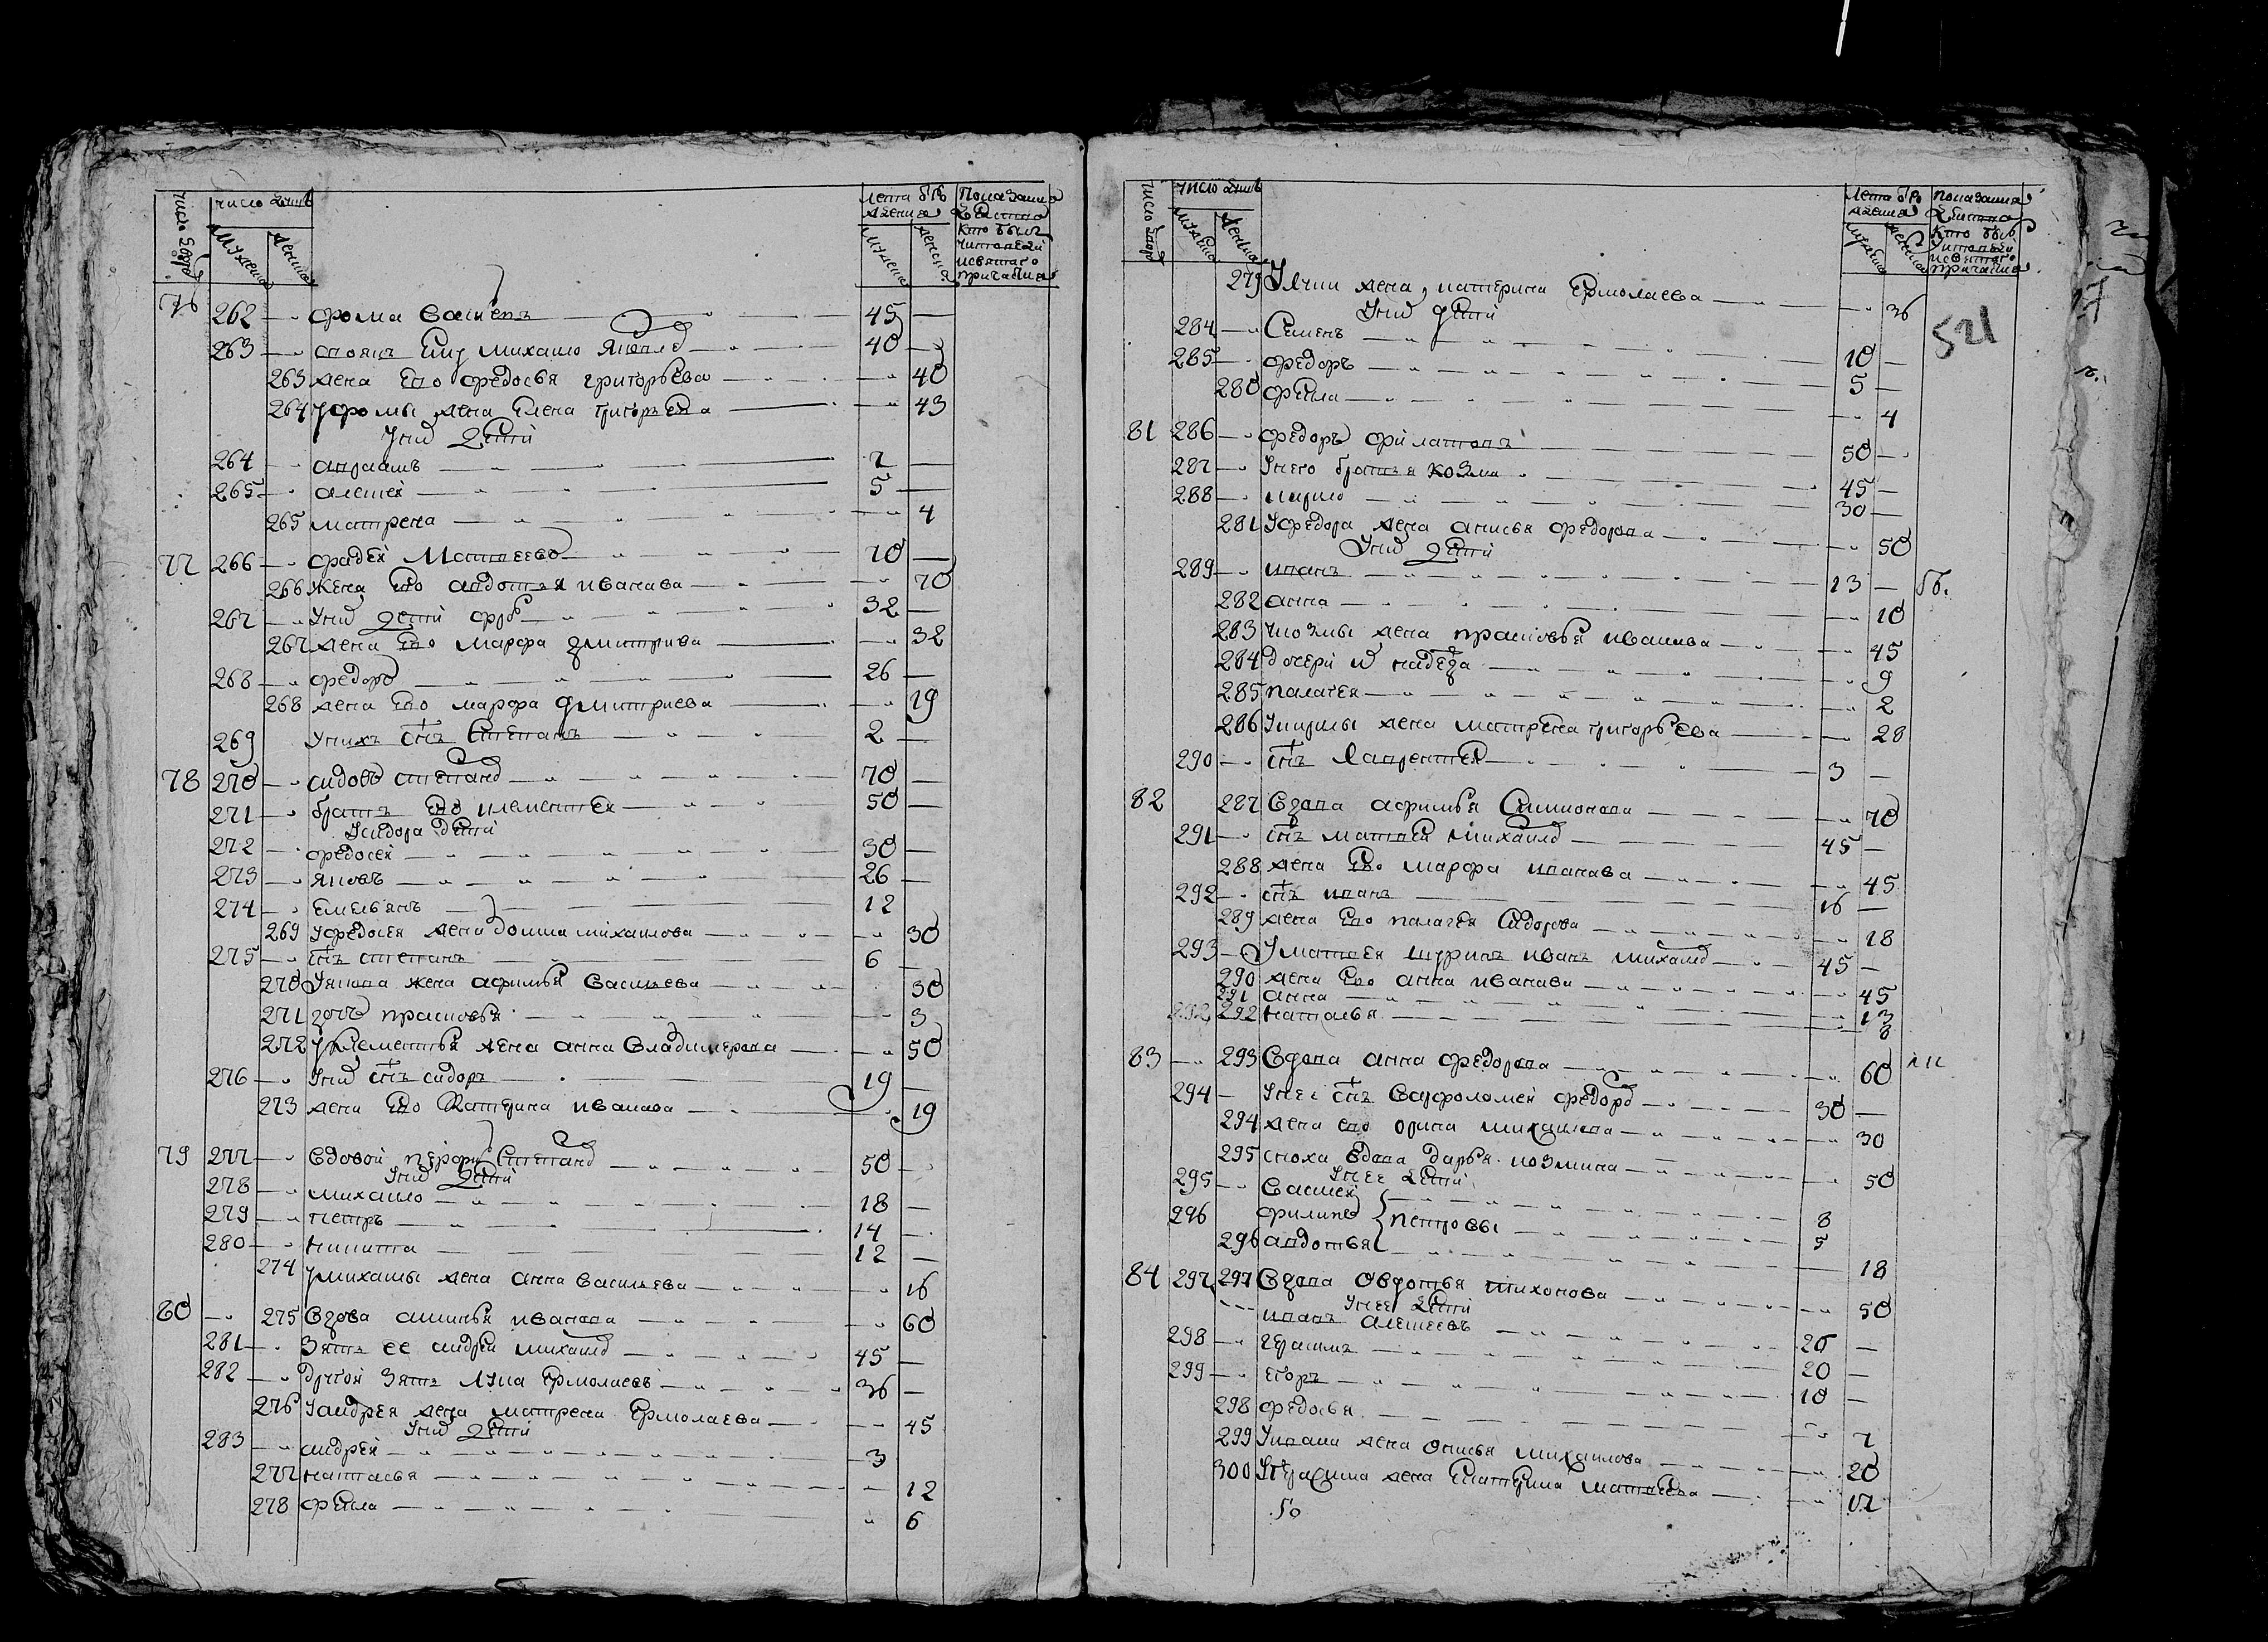 число двор.
число душъ
мужеска
женска
лета рож
дения
мужеска
женска
Показание
действа
кто былъ
у исповеди
и святаго
причастия
76 262 Фома Василевъ 45
263 своякъ ему Михайло Яковлевъ 40
263 жена ево Федосья Григорьева 40
264 у Фомы жена Елена Григорьева 43
у них дети
264 Авраамъ 7
265 Алексей 5
265 Матрена 4
77 266 Фадей Матвеевъ 70
266 жена ево Авдотья Иванава 70
267 у них дети 32
267 жена ево Марфа Дмитрива 32
268 Федоръ 26
268 жена ево Марфа Дмитриева 19
269 у нихъ снъ Степанъ 2
78 270 Сидоръ Степановъ 70
271 братъ ево Клементей 50
у Сидора дети
272 Федосей 30
273 Яковъ 26
274 Емельянъ 12
269 у Федосея жена Домна Михаилова 30
275 снъ Степанъ 6
270 у Якова жена Афимья Васильева 30
271 дочь Прасковья 3
272 у Клементья жена Анна Владимерова 50
276 у них снъ Сидоръ 19
273 жена ево Катерина Иванова 19
79 277 вдовой Степановъ 50
у них дети
278 Михайло 18
279 Петръ 14
280 Никита 12
274 у Михаилы жена Анна Васильева 16
80 275 вдова Акинья Иванова 60
281 зять ее Андрей Михаиловъ 45
282 другой зять Лука Ермолаевъ 36
276 у Андрея жена Матрена Ермолаева 45
у них дети
283 Андрей 3
277 Наталья 12
278 Фекла 6
число двор.
число душъ
мужеска
женска
лета рож
дения
мужеска
женска
Показание
действа
кто былъ
у исповеди
и святаго
причастия
521
279 у Луки жена Катерина Ермолаева 36
у них дети
284 Семенъ 10
285 Федоръ 5
280 Фекла 4
81 286 Федоръ Филатовъ 50
287 у него братья Козма 45
288 Кирило 30
281 у Федора жена Анисья Федорова 50
у них дети
289 Иванъ 13
282 Анна 10
283 у Козмы жена Прасковья Иванива 45
284 дочери их Надежда 9
285 Палагея 2
286 у Кирилы жена Матрена Григорьева 28
290 снъ Лаврентей 3
82 287 вдова Афимья Симионова 70
291 снъ Матвей Михаиловъ 45
288 жена ево Марфа Иванава 45
292 снъ Иванъ 16
289 жена ево Палагея Сидорова 18
293 у Матвея шуринъ Иванъ Михаиловъ 45
290 жена ево Анна Иванава 45
291 Анна 13
292 292 Наталья 8
83 293 вдова Анна Федорова 60
294 у нее снъ Варфоломей Федоровъ 30
294 жена ево Орина Михаилова 30
295 сноха вдова Дарья Козмина 50
у нее дети
295 Василей 8
296 Филипъ Петровы 5
296 Авдотья 18
84 297 297 вдова Овдотья Тихонова 50
у нее дети
Иванъ Алексеевъ 26
298 Герасимъ 20
299 Егоръ 10
298 Федосья 7
299 у Ивана жена Онисья Михаилова 20
300 у Герасима жена Катерина Матвеева 17